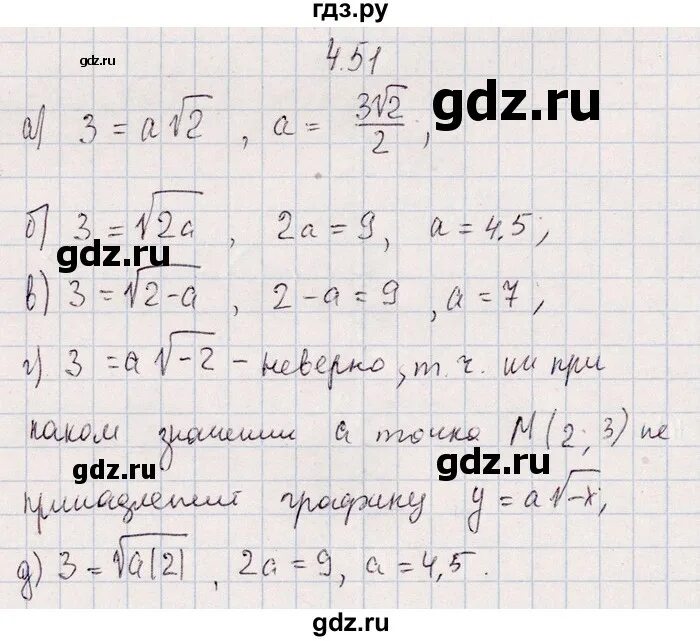 гдз.ру
gdz.ru
4.51
gdz.ru
а) 3 = a√2 , a = 3√2/2 ;
б) 3 = √2a , 2a = 9, a = 4.5;
gdz.ru
в) 3 = √2-a , 2 - a = 9 , a = 7;
г) 3 = a√-2 - неверно, т.ч. ни при
каком значении a точка M(2; 3) не
gdz.ru
gdz.ru
принадлежит графику y = a√-x,
д) 3 = √a|2| , 2a = 9, a = 4,5.
gdz.ru
gdz.ru